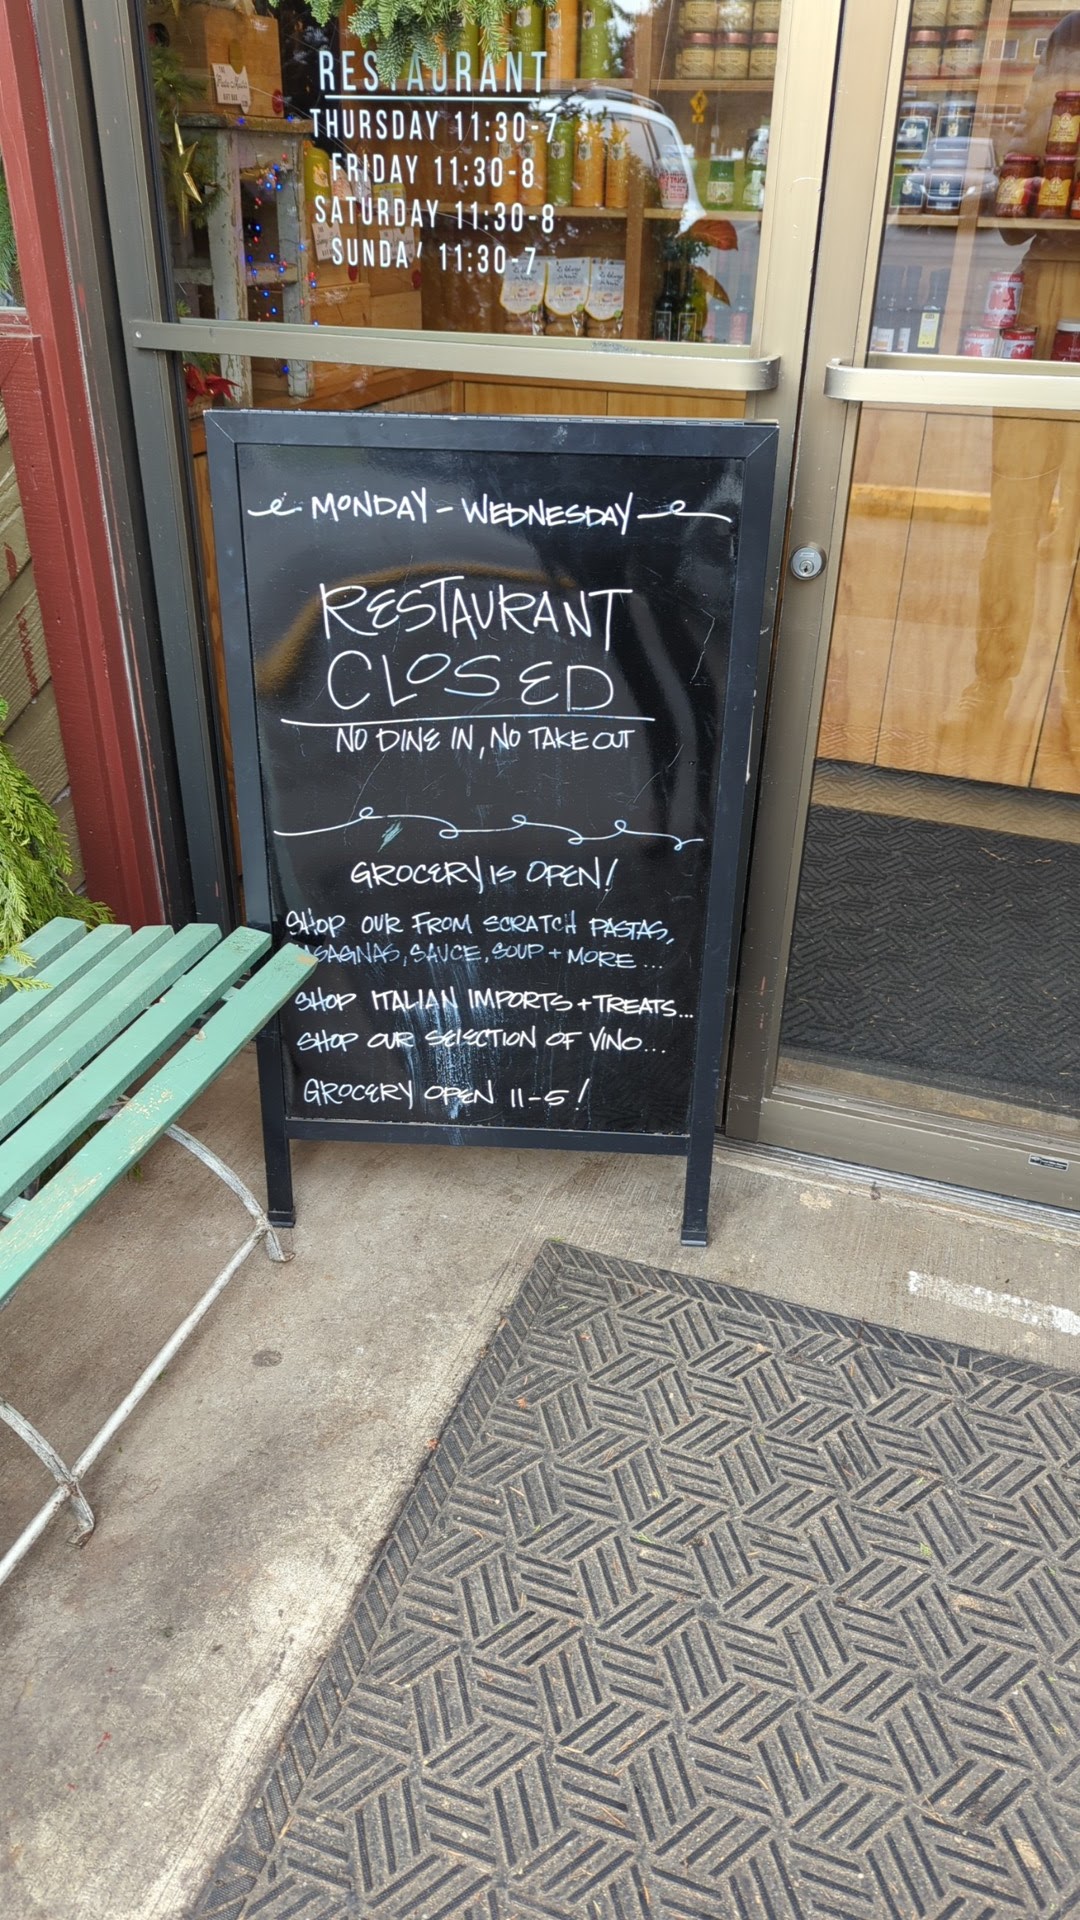 RESTAURANT
THURSDAY 11:30-7
FRIDAY 11:30-8
SATURDAY 11:30-8
SUNDAY 11:30-7
MONDAY - WEDNESDAY
RESTAURANT
CLOSED
NO DINE IN, NO TAKE OUT
GROCERY IS OPEN!
SHOP OUR FROM SCRATCH PASTAS,
SAGNAS, SAUCE, SOUP + MORE...
SHOP ITALIAN IMPORTS + TREATS...
SHOP OUR SELECTION OF VINO...
GROCERY OPEN 11-5!